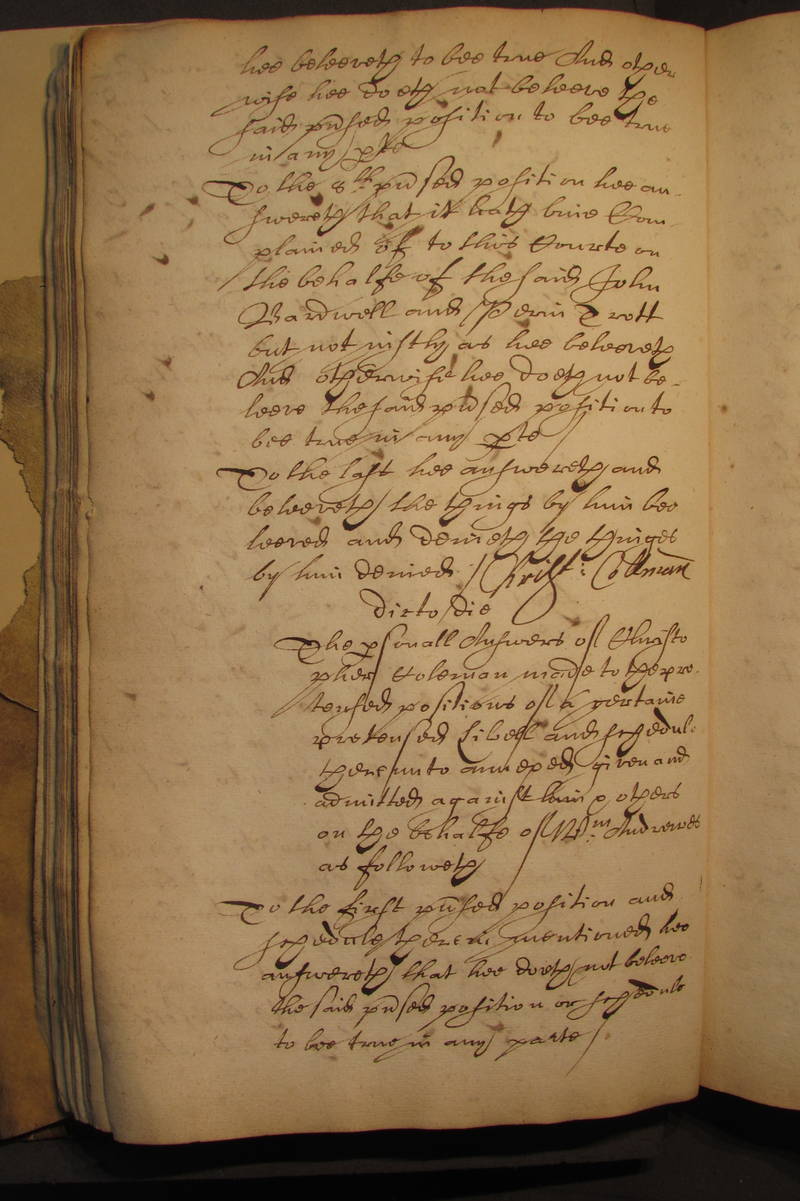 hee beleeveth to bee true And other
wise hee doeth not beleeve the
said p̄nsed position to bee true
in any pte
To the 8th p̄nsed position hee an-
swereth that it hath bine Com-
plained of to this Courte on
the behalfe of the said John
Bardwell and Perin Trott
but not iustly as hee beleeveth
And otherwise hee doeth not be-
leeve the said p̄nsed position to
bee true in any pte
To the last hee answereth and
beleeveth the things by him bee
leeved and denieth the thinges
by him denied / Christ: Collman
die to die
The psonall Answers of Christo
pher Coleman made to the pre-
tensed positions of a certaine
pretensed libell and schedul:
thereunto annexed given and
admitted against him p others
on the behalfe of Wm: Andrewes
as followeth
To the first p̄nsed position and
schedule therein mentioned hee
answereth that hee doeth not beleeve
the said p̄nsed position or schedule
to bee true in any parte /